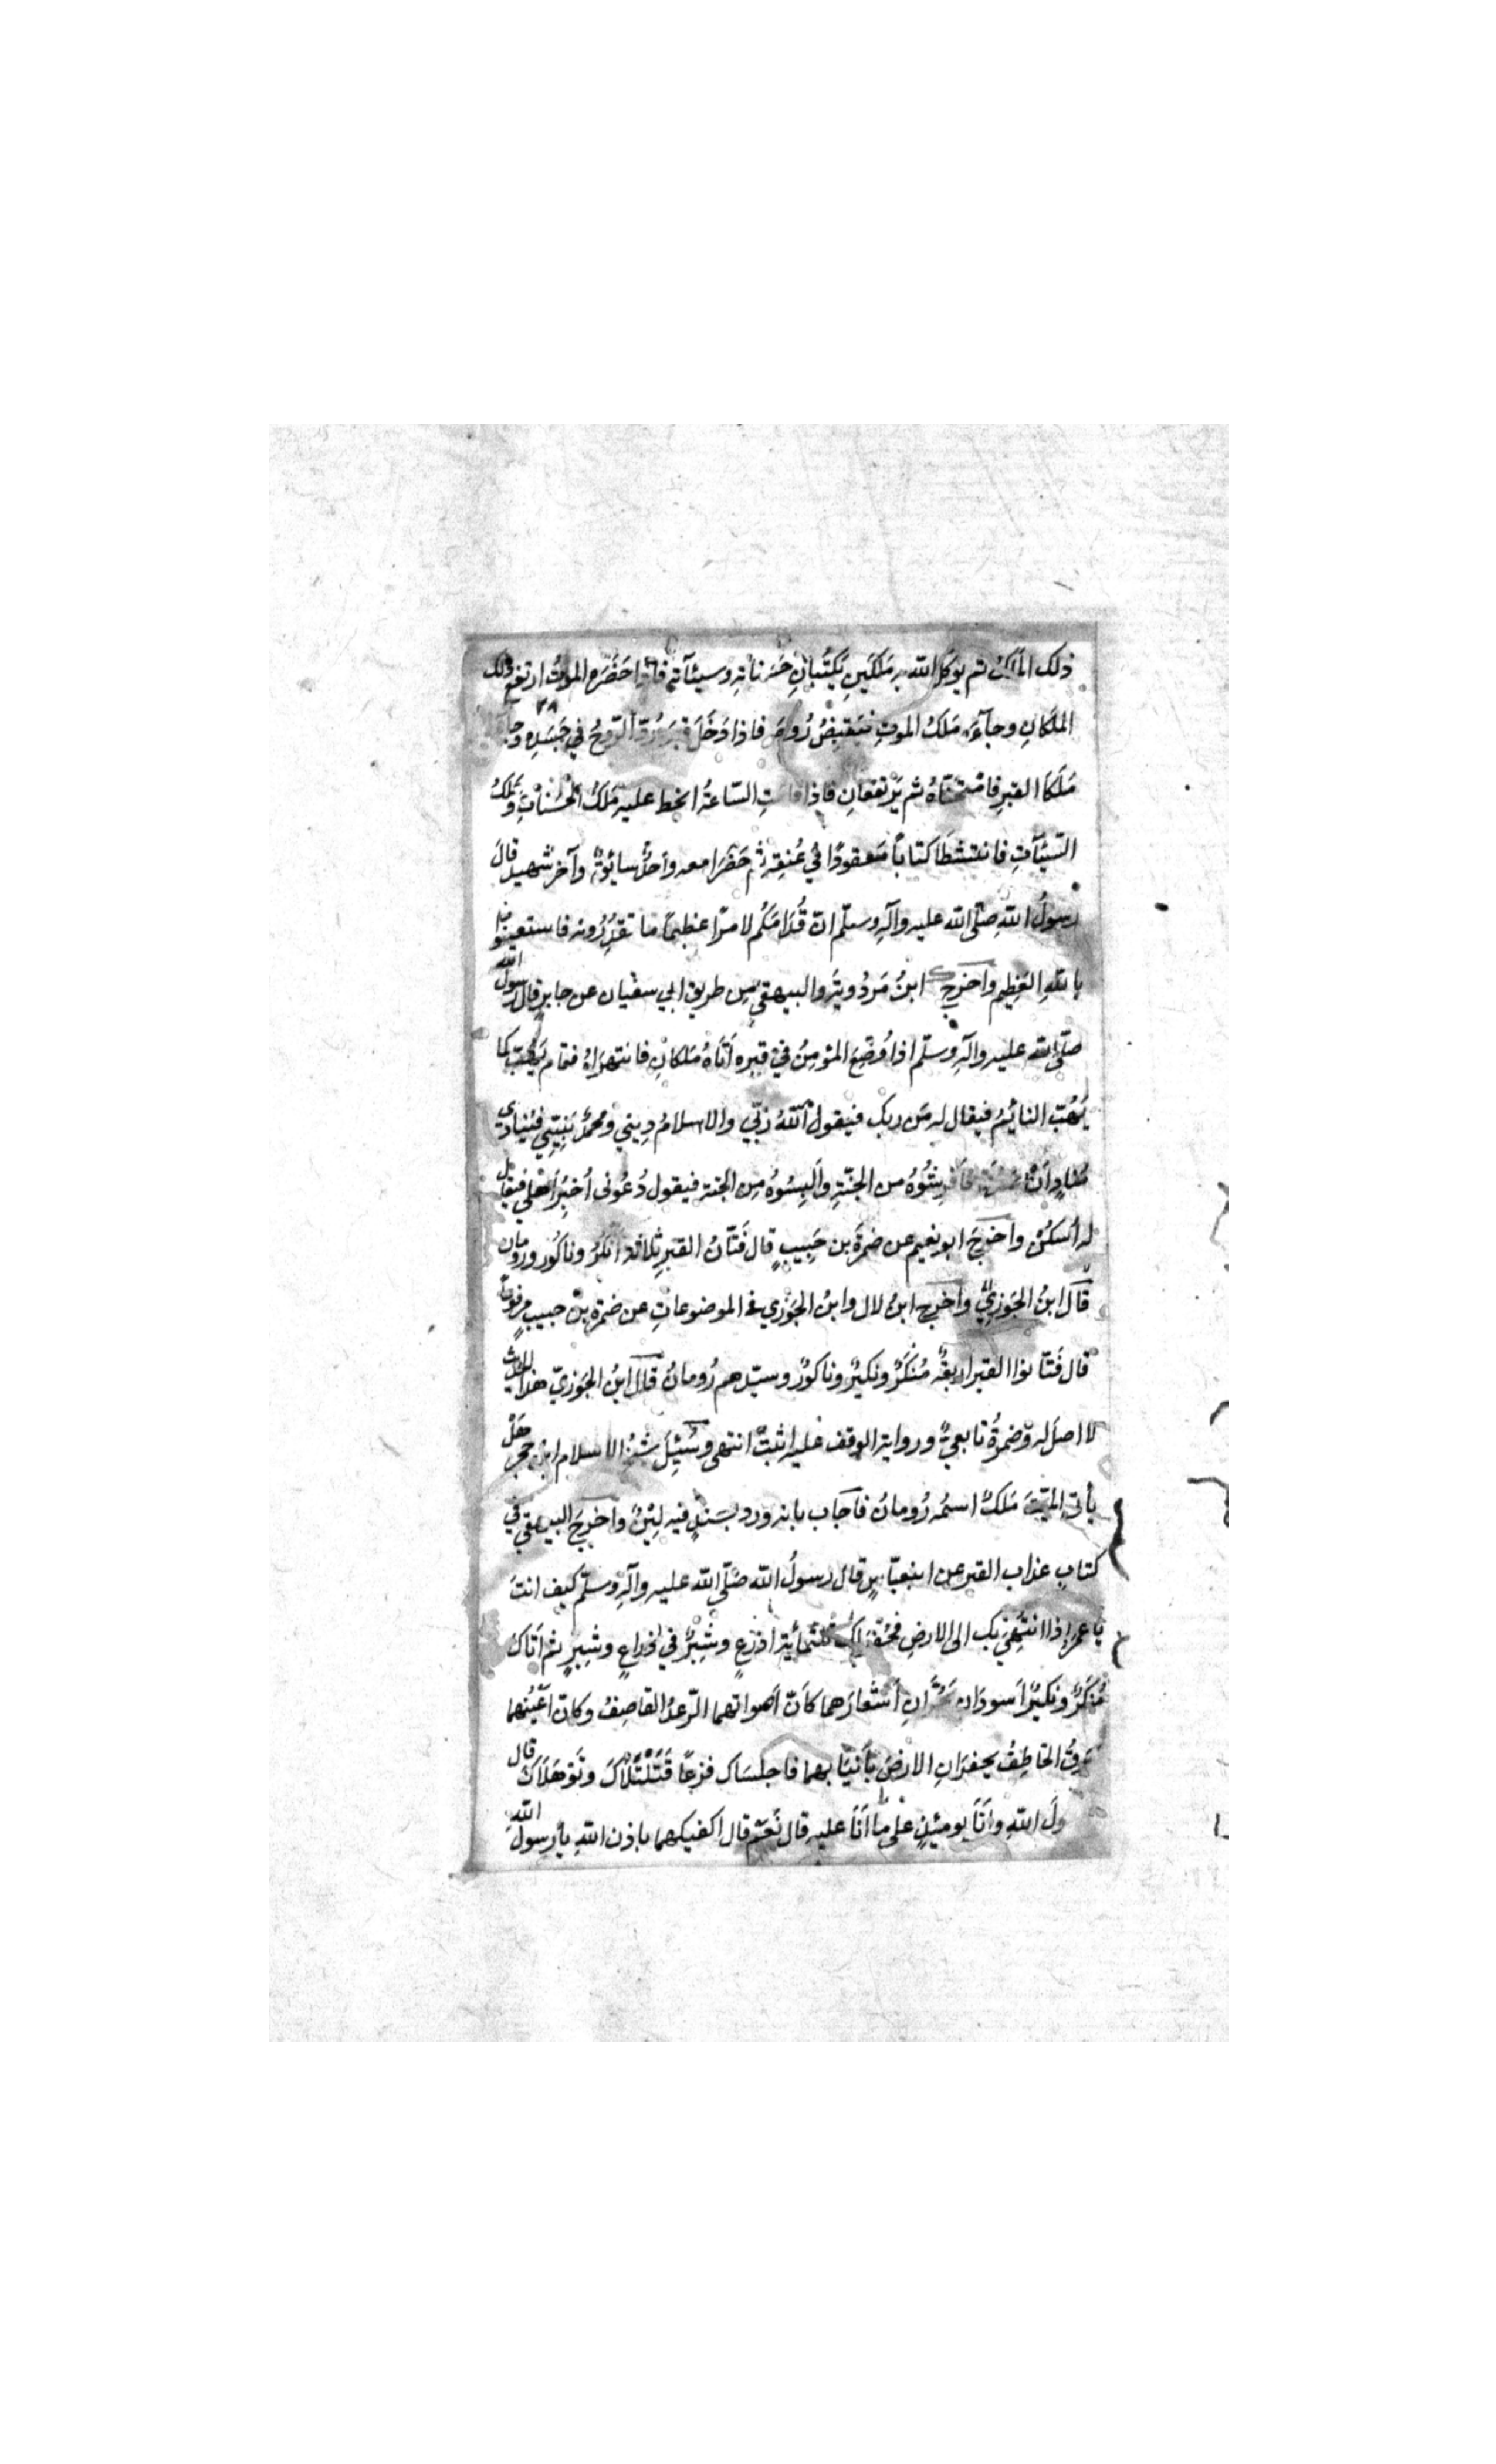 ذلك الملك ثم يوكل الله به مَلكَينِ يَكتُبانِ حَسناتهِ وسيئآتهِ فاذا حَضَره الموتُ ارتفع ذلك
الملَكانِ وجآءَه مَلكُ الموتِ فيَقبِضُ رُوحَه فاذا دَخَلَ قبرَه رُدّ الرّوحُ في جَسَدِه وجآء
مَلَكَا القبرِ فامتحَنَاهُ ثم يَرتفعانِ فاذا قامتِ السّاعةُ انحط عليه مَلَكُ الحَسَناتِ ومَلكُ
السّيّئَاتِ فانتشطَا كتابًا مَعقودًا في عُنقِه ثم حَضَرا معه واحدٌ سائقٌ وآخر شهيد قالَ
رسولُ اللهِ صلّى الله عليه وآلهِ وسلّم انّ قُدّامَكُم لامرًا عظيمًا ما تقدِّرُونه فاستعينوا
باللهِ العَظِيم واخرج ابنُ مَردُويَه والبيهقي مِن طريق ابي سفيان عن جابرٍ قال رسول الله
صلّى الله عليه وآلهِ وسلّم اذا وُضِعَ المؤمِنُ في قبره أتَاهُ مَلكانِ فانتهراهُ فقام يَهُبّ كما
يَهُبّ النائِمُ فيقال له مَن ربك فيقول اللهُ رَبّي والاسلامُ دِيني ومحمدٌ نَبِيّي فيُنادي
مُنادٍ أن فَافرِشُوهُ من الجنّةِ وأَلبِسُوهُ مِن الجنة فيقول دَعُوني أُخبِرُ أهلي فيقال
له أسكُن واخرجَ ابو نعيم عن ضمرَةَ بن حَبِيبٍ قال فَتّانُ القبرِ ثلاثة أنكَرُ وناكُور ورومان
قالَ ابنُ الجَوزِيِّ واخرج ابنُ لال وابنُ الجَوزي في الموضوعاتِ عن ضمرةِ بن حبيب مرفوعًا
قال فَتّانوا القبر اربعَةٌ مُنكَرٌ ونكيرٌ وناكورٌ وسيّدهم رُومانُ قال ابنُ الجَوزيّ هذا الحديث
لا اصلَ له وضمرةُ تابعيٌّ ورواية الوقف عليه اثبتُ انتهى وسُئِلَ شيخُ الاسلام ابن حجر هَلْ
يأتي الميّتَ مَلَكٌ اسمُه رُومانُ فأجَاب بانه ورد بسندٍ فيه لِينٌ واخرجَ البيهقي في
كتابِ عذاب القبر عن ابن عبّاسٍ قال رسولُ الله صَلّى الله عليه وآلهِ وسلّم كيف انتَ
يا عمر اذا انتُهِيَ بك الى الارضِ فحُفِرَ لك ثلثمائة اذرُعٍ وشِبْرٌ في ذراعٍ وشِبرٍ ثم أتاكَ
مُنكَرٌ ونكيرٌ أسودَان يَجُرَّانِ أشعارَهما كأنّ أصواتهما الرّعدُ القاصِفُ وكانّ اعْيُنهما
بَرقُ الخاطِفُ يحفرَانِ الارضَ بأنيَابهما فاجلسَاك فزعًا فَتَلْتَلَاكَ وتَوْهَلَاكَ قال
ولَ اللهِ وأَنَا يومئِذٍ على ما أَنَا عليه قال نَعَم قال اكفيكهما باذن اللهِ يا رسول الله